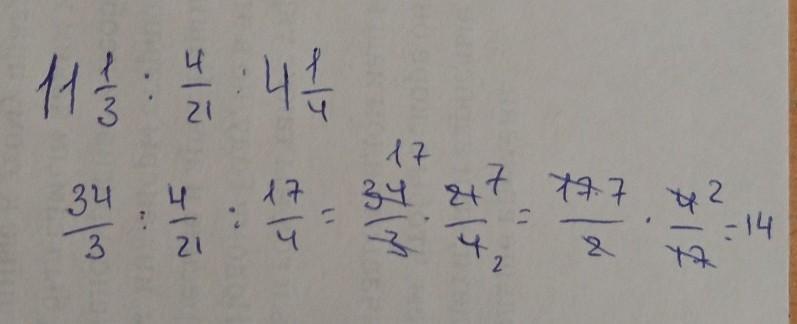 11 1/3 : 4/21 : 4 1/4
34/3 : 4/21 : 17/4 = 34 17/3 · 21 7/4 2 = 17·7/2 · 4 2/17 = 14